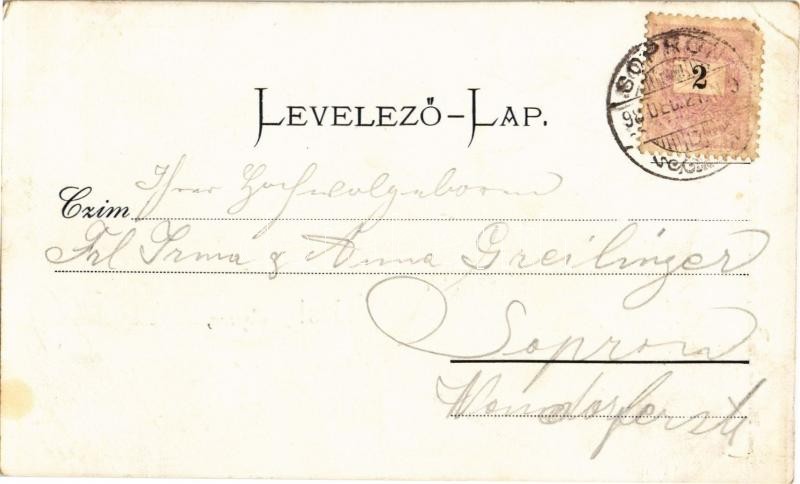 SOPRON
98 DEC. 21.
2
LEVELEZŐ-LAP.
Czim Ihrer Hochwolgeboren
Frl Irma & Anna Greilinger
Sopron